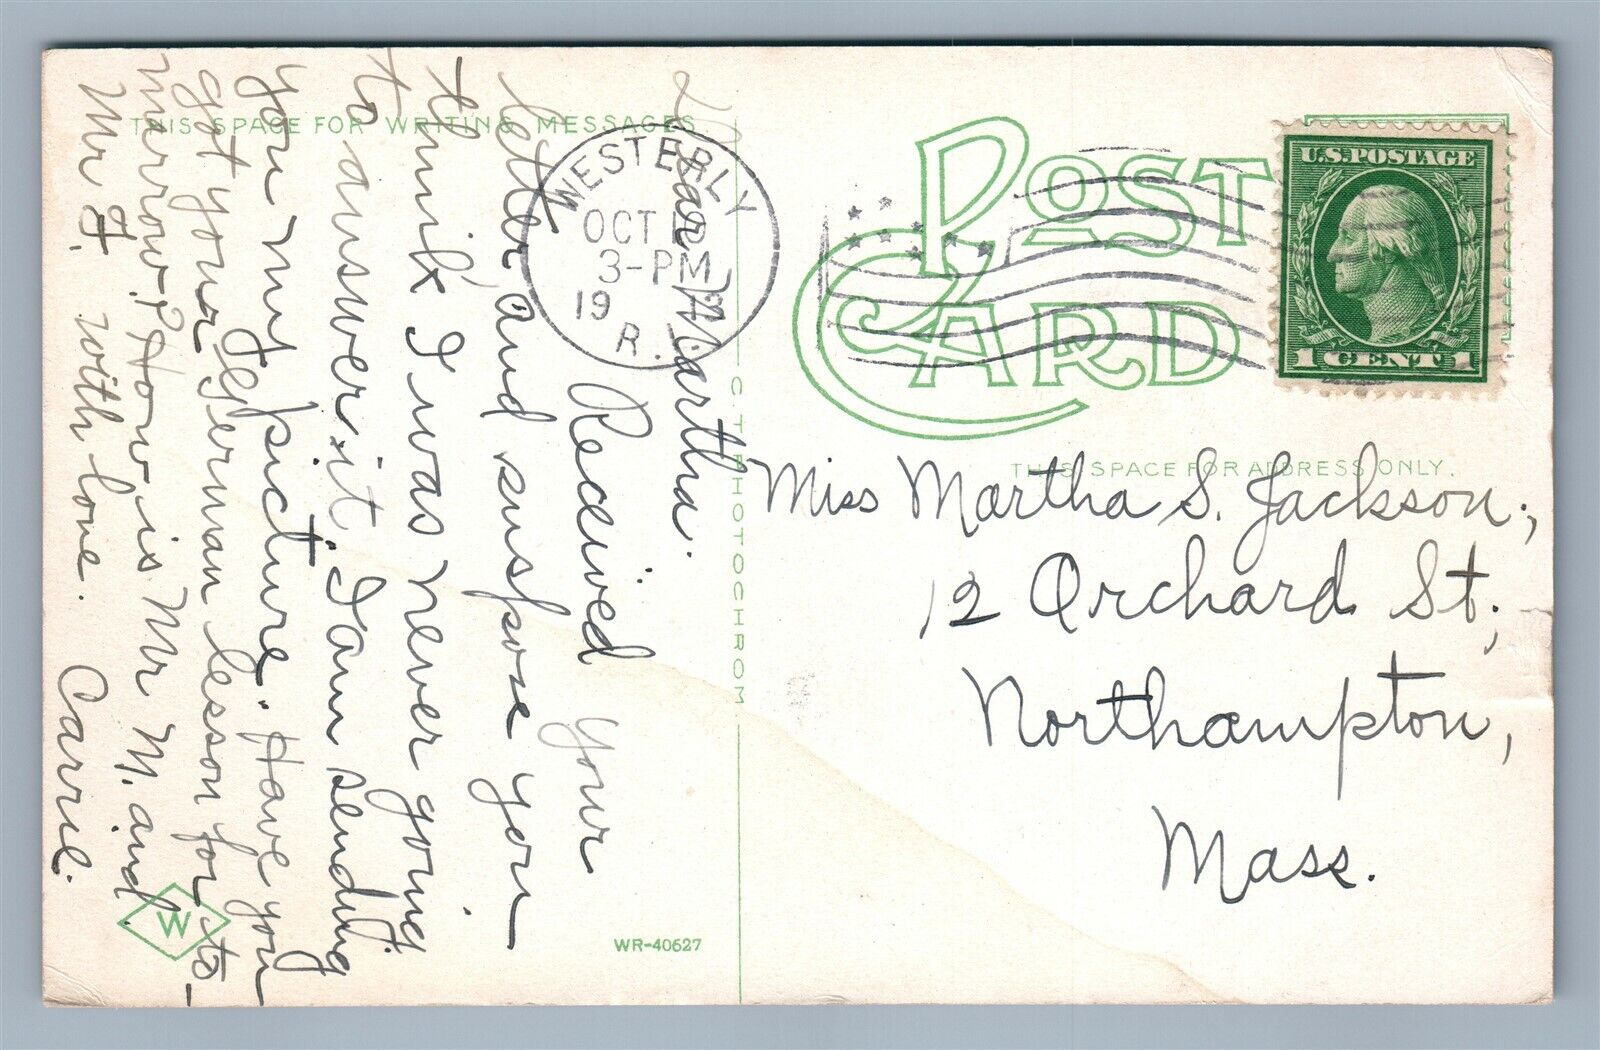 THIS SPACE FOR WRITING MESSAGES
Dear Martha.
Received your
letter, and suspose you
think I was never going
to answer it. I am sending
you my picture. Have you
got your German lesson for to-
morrow? How is Mr M. and
Mr F. With love. Carrie.
W
WR-40627
C. T. PHOTOCHROM
WESTERLY
OCT
3-PM
19
R.
POST CARD
U.S. POSTAGE
1 CENT 1
THIS SPACE FOR ADDRESS ONLY.
Miss Martha S. Jackson,
12 Orchard St,
Northampton,
Mass.